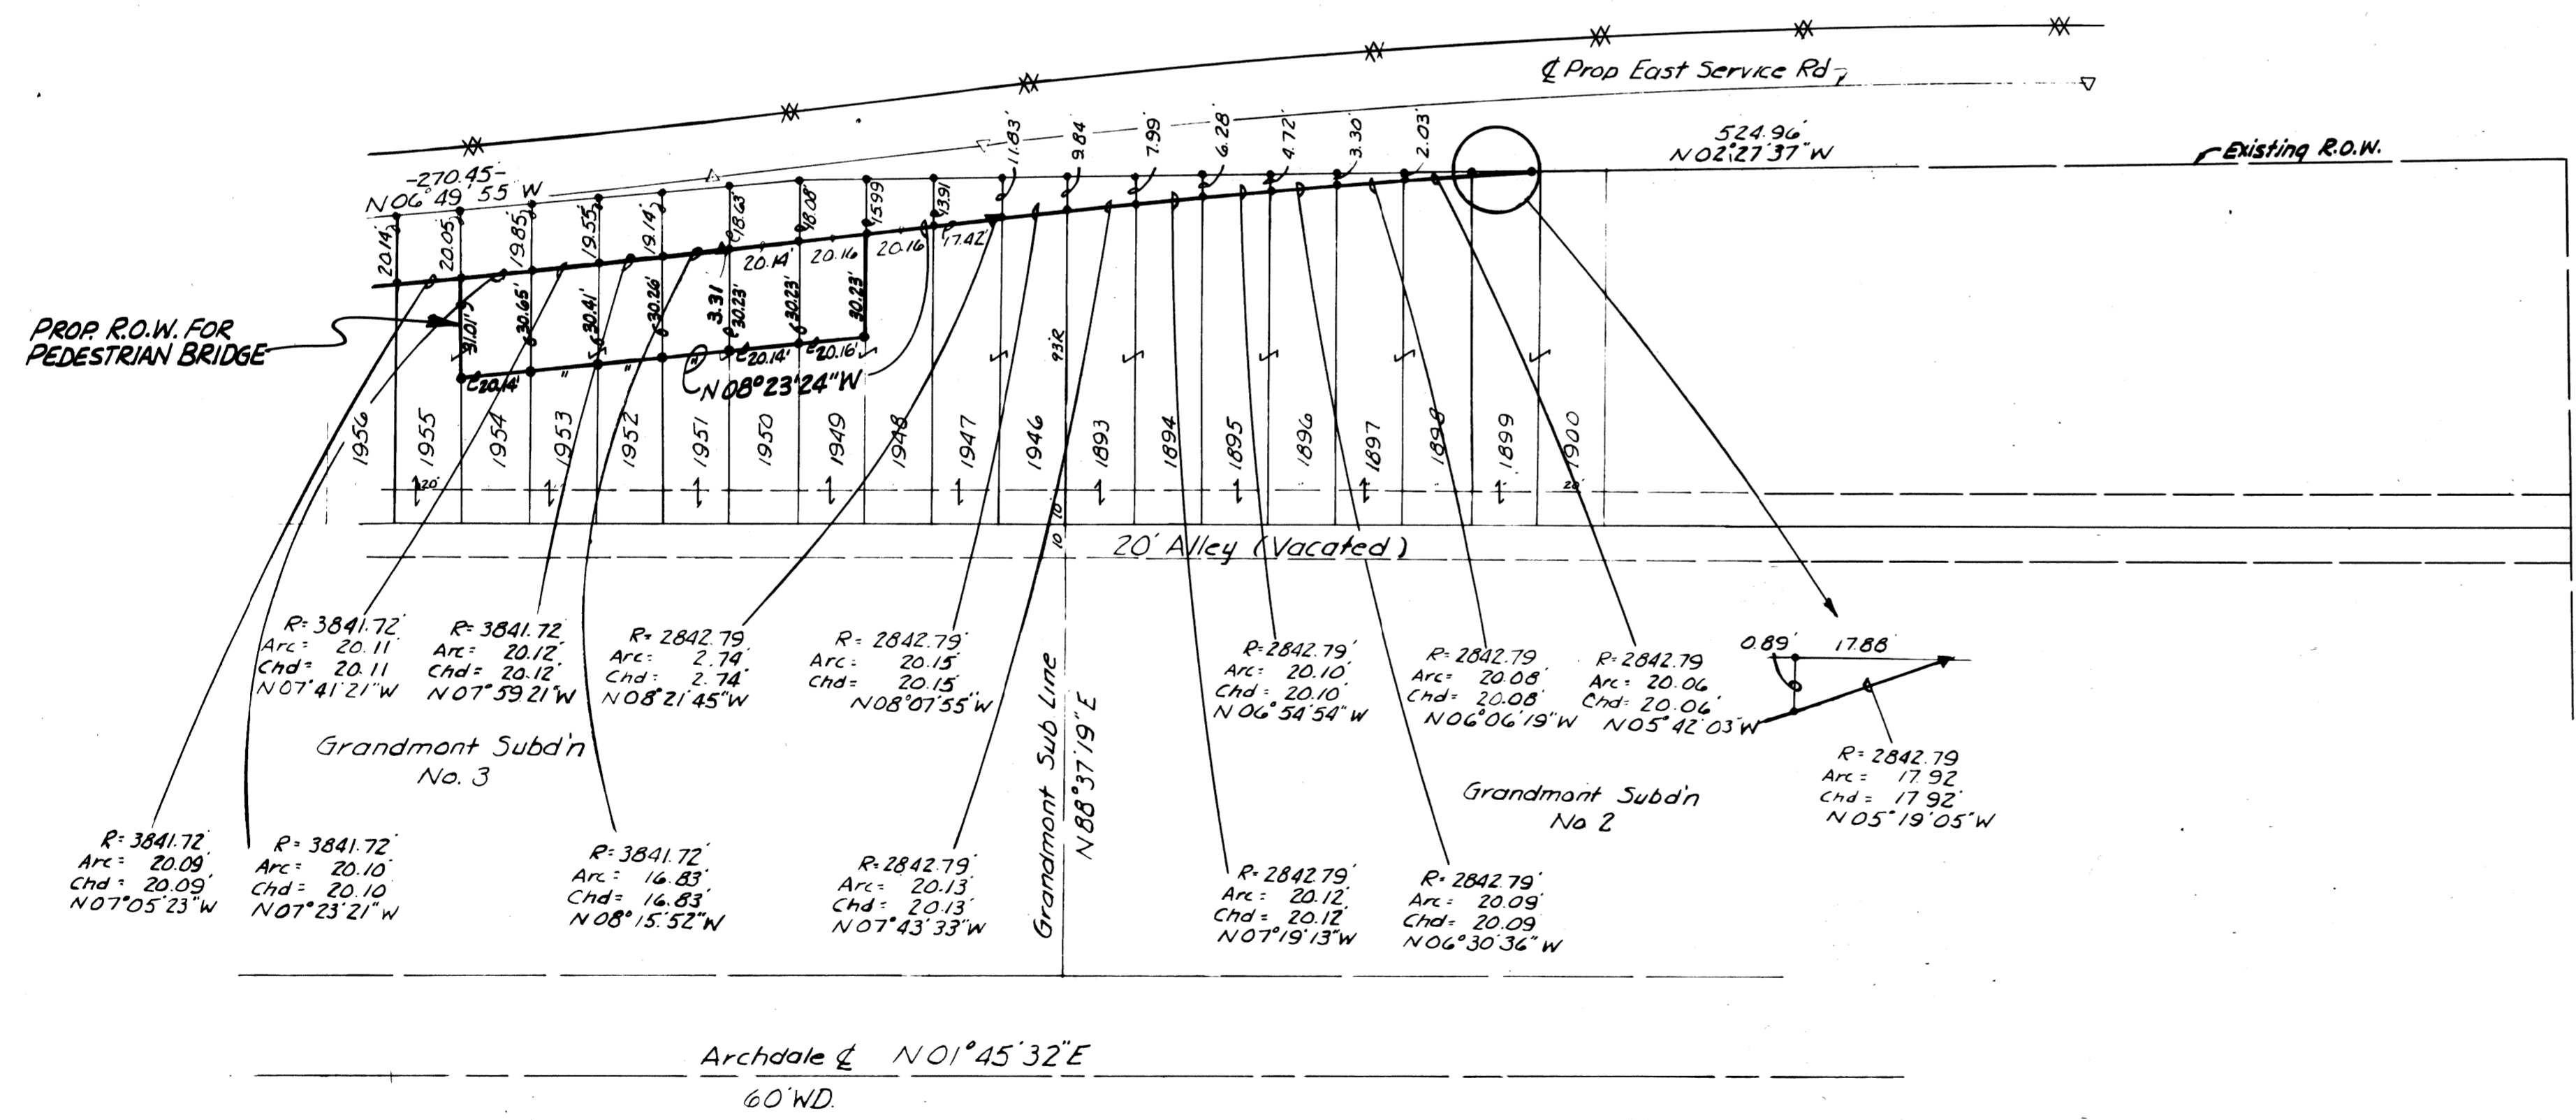 ₵ Prop East Service Rd
524.96'
N02°27'37"W
Existing R.O.W.
-270.45-
N06°49'55"W
20.14'
20.05'
19.85'
19.55'
19.14'
18.63'
18.08'
15.99
13.91
11.83'
9.84'
7.99'
6.28'
4.72'
3.30'
2.03'
20.14'
20.16
20.16
17.42'
PROP. R.O.W. FOR
PEDESTRIAN BRIDGE
31.01'
30.65'
30.41'
30.26'
3.31
30.23'
30.23'
30.23'
20.14'
"
"
"
20.14'
20.16'
N08°23'24"W
93R
1956
1955
1954
1953
1952
1951
1950
1949
1948
1947
1946
1893
1894
1895
1896
1897
1898
1899
1900
20'
20'
10
10
20' Alley (Vacated)
R= 3841.72'
Arc= 20.11'
Chd= 20.11
N07°41'21"W
R= 3841.72
Arc= 20.12'
Chd= 20.12'
N07°59'21"W
R= 2842.79
Arc= 2.74'
Chd= 2.74'
N08°21'45"W
R= 2842.79'
Arc= 20.15'
Chd= 20.15'
N08°07'55"W
R=2842.79'
Arc= 20.10'
Chd= 20.10'
N06°54'54"W
R=2842.79
Arc= 20.08'
Chd= 20.08'
N06°06'19"W
R=2842.79
Arc= 20.06
Chd= 20.06'
N05°42'03"W
0.89'
17.88'
R= 2842.79
Arc= 17.92
Chd= 17.92'
N05°19'05"W
Grandmont Subd'n
No. 3
Grandmont Sub Line
N88°37'19"E
Grandmont Subd'n
No 2
R= 3841.72'
Arc= 20.09'
Chd= 20.09'
N07°05'23"W
R= 3841.72'
Arc= 20.10'
Chd= 20.10'
N07°23'21"W
R= 3841.72'
Arc= 16.83'
Chd= 16.83'
N08°15'52"W
R=2842.79'
Arc= 20.13'
Chd= 20.13'
N07°43'33"W
R=2842.79'
Arc= 20.12'
Chd= 20.12'
N07°19'13"W
R=2842.79'
Arc= 20.09'
Chd= 20.09
N06°30'36"W
Archdale ₵ N01°45'32"E
60'WD.